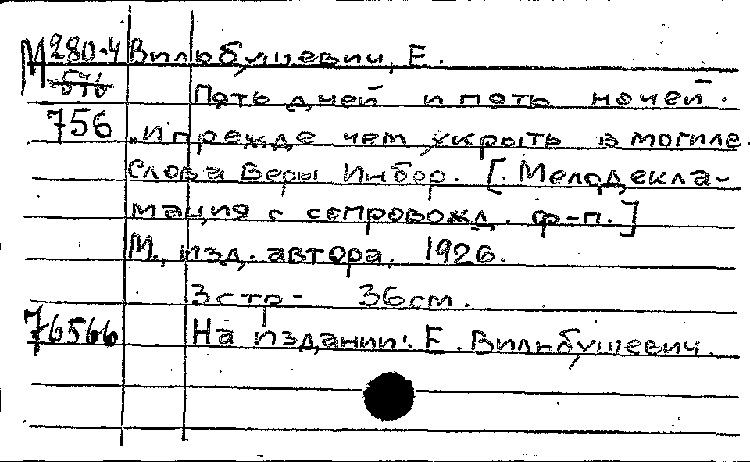 М280-4 Вильбушевич, Е.
516 Пять дней и пять ночей.
756 „и прежде чем укрыть в могиле.
Слова Веры Инбор. [Мелодекла-
мация с сопровожд. ф-п.]
М., изд. автора. 1926.
3 стр- 36см.
76566 На издании: Е. Вильбушевич.